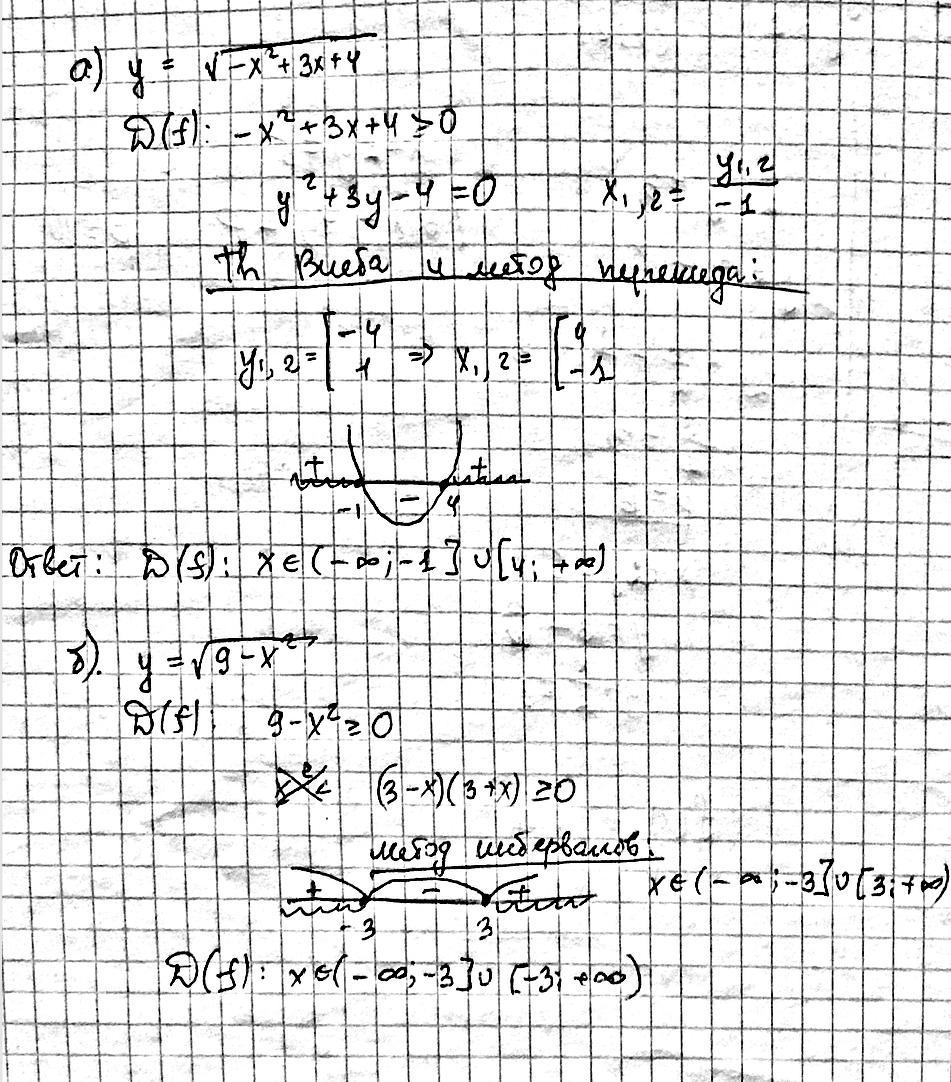 а) y = √(-x²+3x+4)
D(f): -x²+3x+4 ≥ 0
y²+3y-4=0    x₁,₂ = y₁,₂/-1
th Виета и метод перекида:
y₁,₂ = [-4 1 ⇒ x₁,₂ = [4 -1
+ - +
-1 4
Ответ: D(f): x ∈ (-∞;-1] ∪ [4; +∞)
б). y = √(9-x²)
D(f): 9-x² ≥ 0
(3-x)(3+x) ≥ 0
метод интервалов:
+ - +    x ∈ (-∞;-3] ∪ [3;+∞)
-3 3
D(f): x ∈ (-∞;-3] ∪ [-3; +∞)